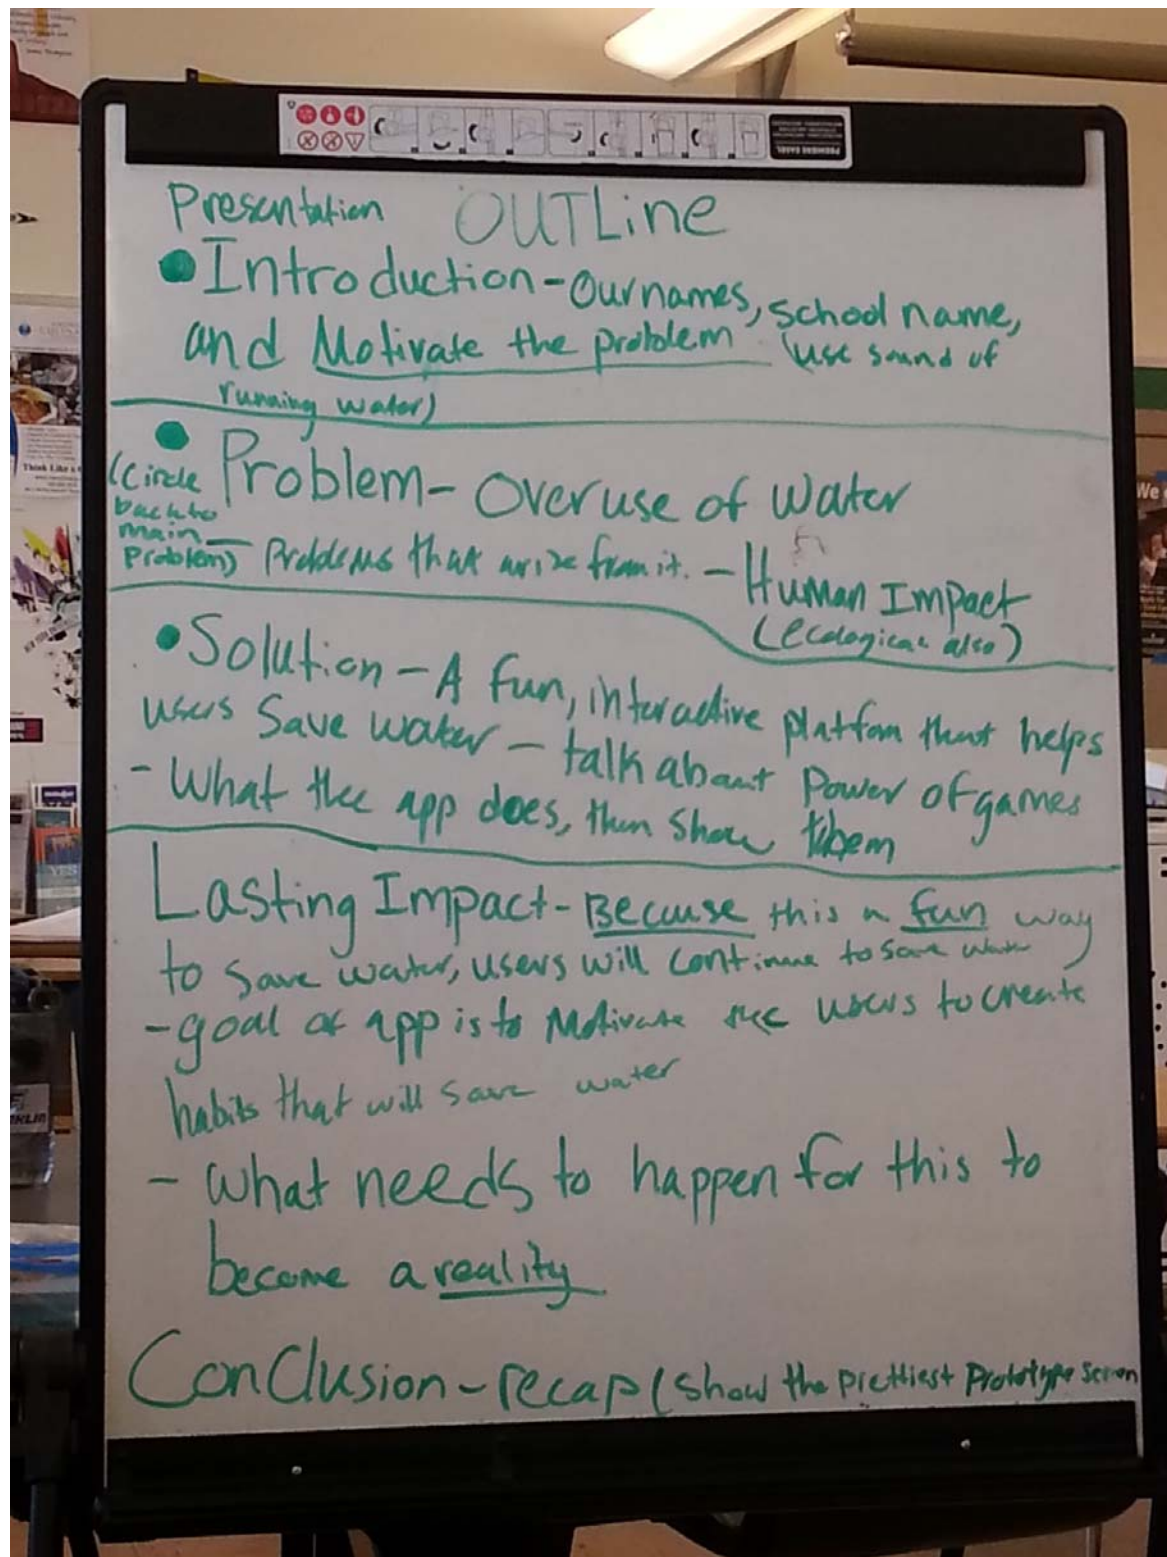 Presentation OUTLine
• Introduction - Our names, school name,
and Motivate the problem (use sound of
running water)
• Problem - Overuse of Water
(Circle
back to
main
Problem) - Problems that arise from it. - Human Impact
(ecological also)
• Solution - A fun, interactive platform that helps
users Save water - talk about Power of games
- What the app does, then show them
Lasting Impact - Because this a fun way
to save water, users will continue to save water
- goal of app is to Motivate the users to create
habits that will save water
- What needs to happen for this to
become a reality
Conclusion - recap (show the prettiest Prototype screen
Think Like a
YES
KLIN
We
PREMIERE EASEL